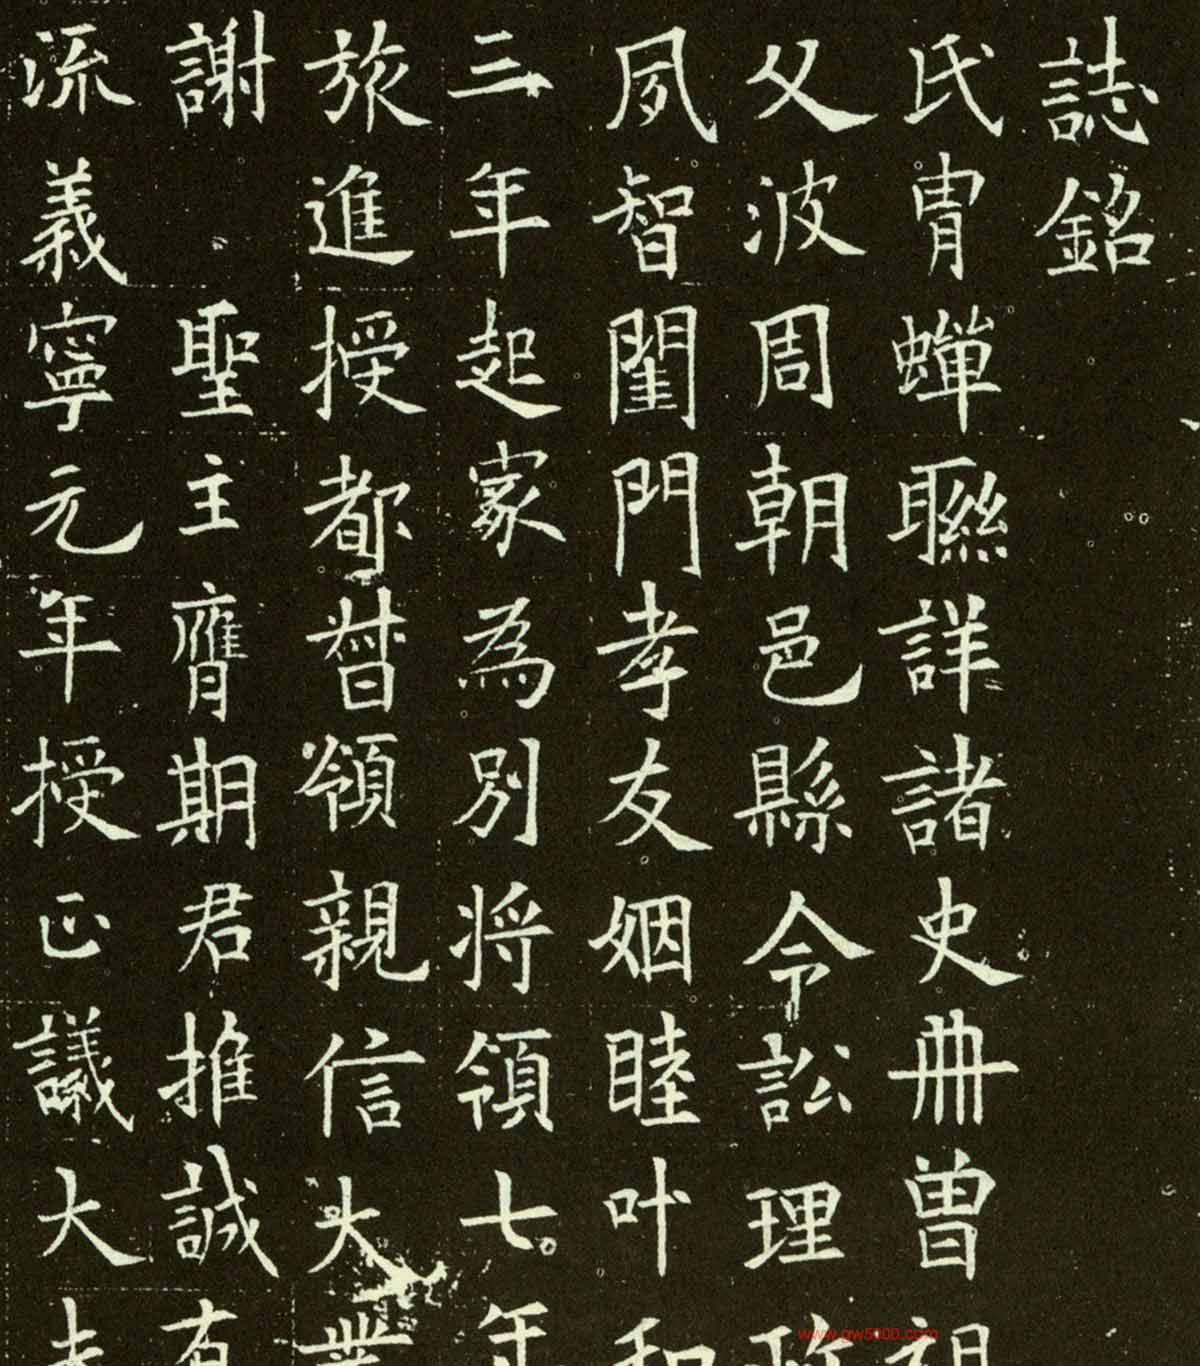 誌銘
氏胄蟬聯詳諸史冊曾祖
父波周朝邑縣令訟理政
夙智閨門孝友姻睦叶和
三年起家為別將領七年
旅進授都督領親信大業
謝 聖主膺期君推誠有
流義寧元年授正議大夫
www.gw5000.com